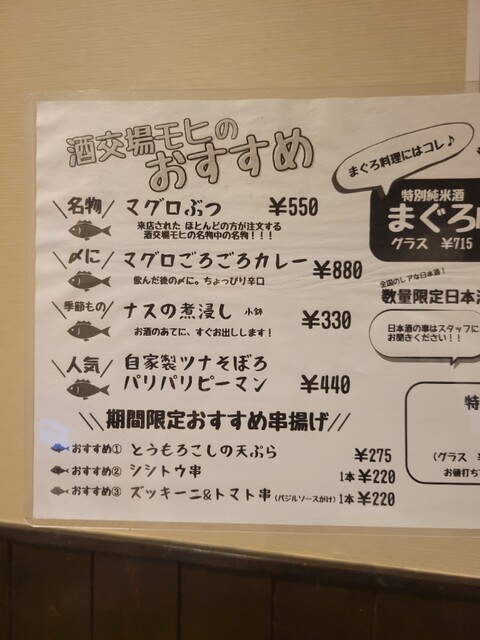 酒交場モヒの
おすすめ
名物
マグロぶつ ¥550
来店された ほとんどの方が注文する
酒交場モヒの名物中の名物!!!
〆に
マグロごろごろカレー ¥880
飲んだ後の〆に。ちょっぴり辛口
季節もの
ナスの煮浸し 小鉢 ¥330
お酒のあてに、すぐお出しします!
人気
自家製ツナそぼろ
パリパリピーマン ¥440
期間限定おすすめ串揚げ
おすすめ① とうもろこしの天ぷら ¥275
おすすめ② シシトウ串 1本 ¥220
おすすめ③ ズッキーニ&トマト串(バジルソースがけ) 1本 ¥220
まぐろ料理にはコレ♪
特別純米酒
まぐろ
グラス ¥715
全国のレアな日本酒!
数量限定日本
日本酒の事はスタッフに
お聞きください!!
特
(グラス
お値打ち